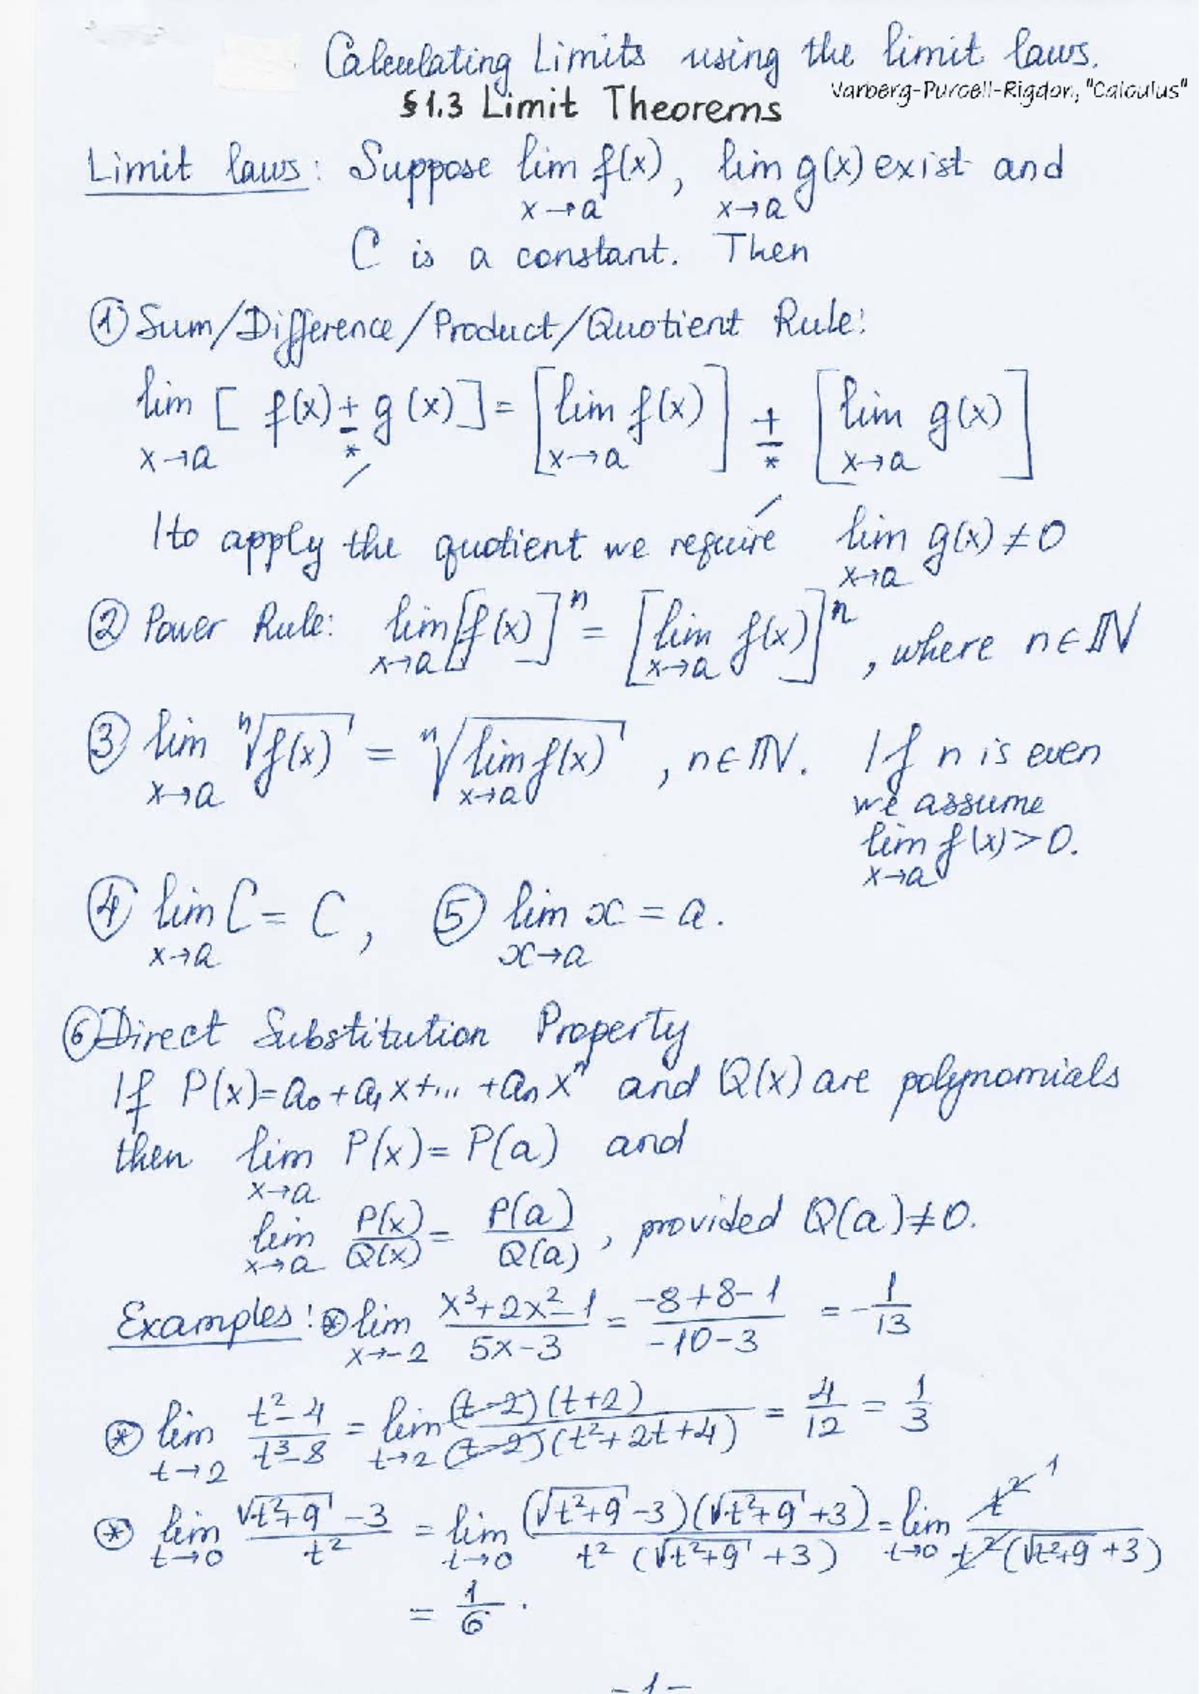 Calculating Limits using the limit laws.
§1.3 Limit Theorems
Varberg-Purcell-Rigdon, "Calculus"
Limit laws: Suppose lim f(x), lim g(x) exist and
x→a x→a
C is a constant. Then
① Sum/Difference/Product/Quotient Rule:
lim [ f(x) ± g(x) ] = [ lim f(x) ] ± [ lim g(x) ]
x→a * / x→a * / x→a
! to apply the quotient we require lim g(x) ≠ 0
x→a
② Power Rule: lim [f(x)]^n = [ lim f(x) ]^n , where n ∈ ℕ
x→a x→a
③ lim ⁿ√f(x) = ⁿ√lim f(x) , n ∈ ℕ. If n is even
x→a x→a
we assume
lim f(x) > 0.
x→a
④ lim C = C , ⑤ lim x = a.
x→a x→a
⑥ Direct Substitution Property
If P(x) = a₀ + a₁x + ... + aₙxⁿ and Q(x) are polynomials
then lim P(x) = P(a) and
x→a
lim P(x)/Q(x) = P(a)/Q(a) , provided Q(a) ≠ 0.
x→a
Examples: ⊛ lim (x³+2x²-1)/(5x-3) = (-8+8-1)/(-10-3) = -1/13
x→-2
⊛ lim (t²-4)/(t³-8) = lim (t-2)(t+2)/(t-2)(t²+2t+4) = 4/12 = 1/3
t→2 t→2
⊛ lim (√t²+9 -3)/t² = lim (√t²+9 -3)(√t²+9 +3)/t²(√t²+9 +3) = lim t² 1/t²(√t²+9 +3)
t→0 t→0 t→0
= 1/6 .
-1-